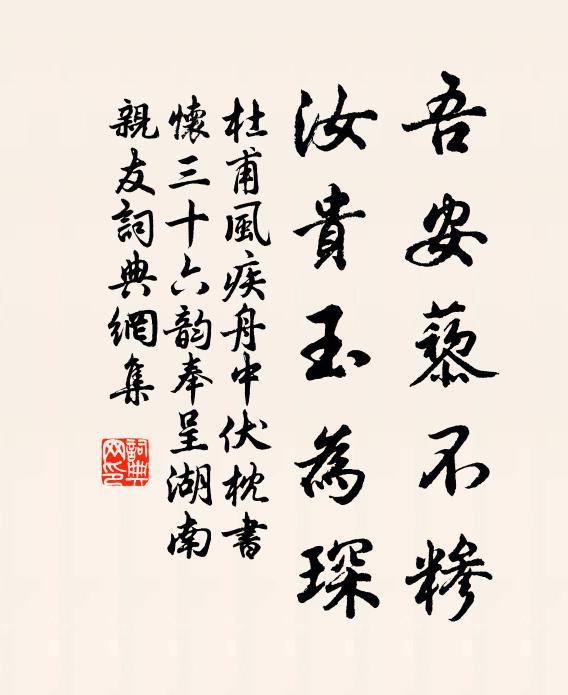 吾安藜不糁
汝貴玉為琛
杜甫風疾舟中伏枕書
懷三十六韵奉呈湖南
親友詞典網集
詞典网印